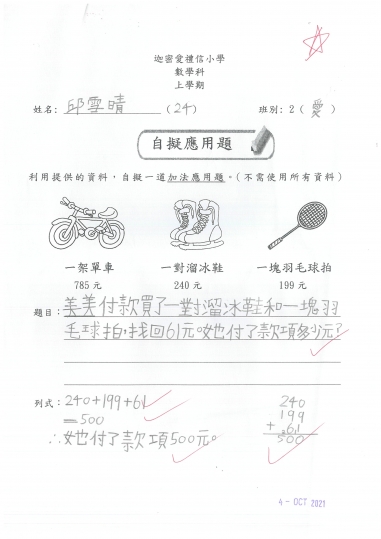 迦密愛禮信小學
數學科
上學期
姓名: 邱雪晴 (24) 班別: 2 (愛)
自擬應用題
利用提供的資料，自擬一道加法應用題。(不需使用所有資料)
一架單車 一對溜冰鞋 一塊羽毛球拍
785 元 240 元 199 元
題目: 美美付款買了一對溜冰鞋和一塊羽
毛球拍,找回61元。她也付了款項多少元?
列式: 240+199+61
=500
∴她付了款項500元。
240
199
+ 61
500
4 - OCT 2021